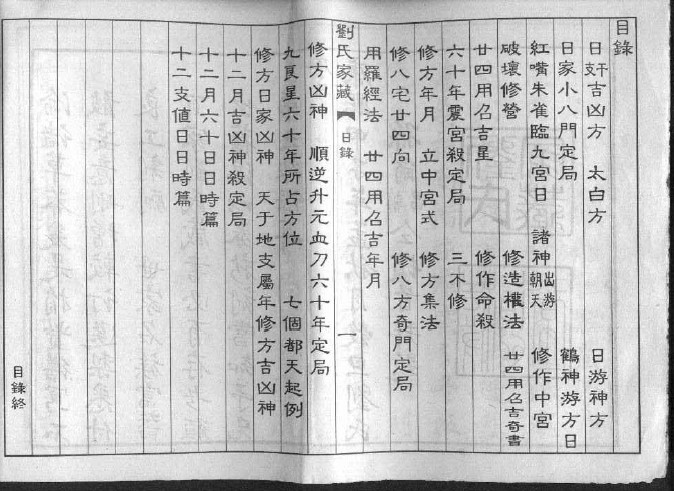 目錄
日奸吉凶方　太白方　日游神方
日家小八門定局　鶴神游方日
紅嘴朱雀臨九宮日　諸神出游朝天　修作中宮
破壞修營　修造權法　廿四用名吉奇書
廿四用名吉星　修作命殺
六十年震宮殺定局　三不修
修方年月　立中宮式　修方集法
修八宅廿四向　修八方奇門定局
用羅經法　廿四用名吉年月
劉氏家藏　目錄　一
修方凶神　順逆升元血刀六十年定局
九良星六十年所占方位　七個都天起例
修方日家凶神　天于地支屬年修方吉凶神
十二月吉凶神殺定局
十二月六十日日時篇
十二支值日日時篇
目錄終